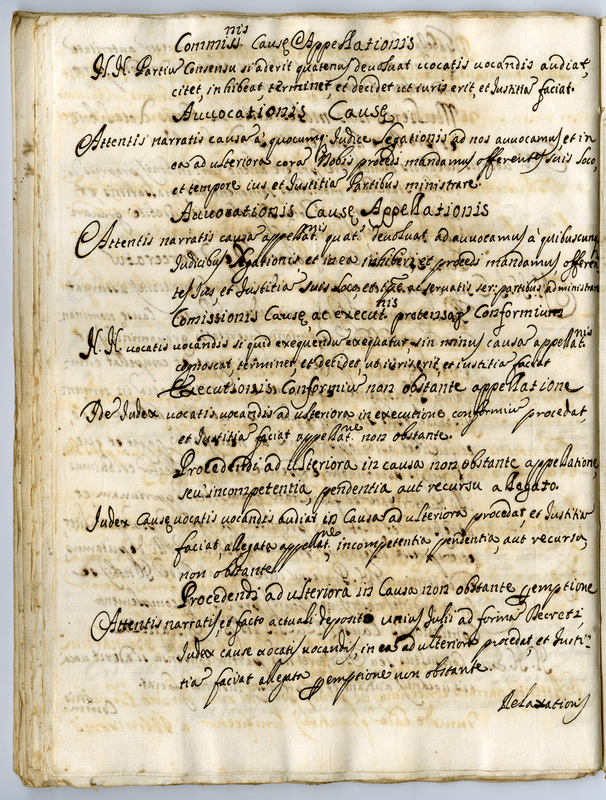 Commiss.nis Causę Appellationis
N. N. Partiũ Consensu si aderit quatenus devoluat vocatis vocandis audiat,
citet, inhibeat, terminet, et decidet uti iuris erit, et Iustitiã faciat.
Auuocationis Causę
Attentis narratis causã à quocumq; Iudice Legationis ad nos auuocamus et in
ea ad ulteriora corã Nobis procedi mandamus offerentes suis loco,
et tempore ius, et Iustitiã Partibus ministrare.
Auuocationis Causę Appellationis
Attentis narratis causã appellat.nis quat.s devoluat. ad auuocamus à quibuscunq
Iudicibus Legationis et in ea inhiberi, et procedi mandamus, offeren
tes Ius, et Iustitiã suis loco, et tẽpe ac servatis ser: partibus administrare
Comissionis Causę ac execut.nis prętensar. Conformium
N. N. vocatis vocandis si quid exequendũ exequatur, sin minus causã appellat.nis
cognoscat, terminet, et decidet, uti iuris erit, et iustitiã faciat
Executionis Conformiũ non obstante appellatione
Idẽ Iudex vocatis vocandis ad ulteriora in executione conformiũ procedat,
et Iustitiã faciat appellat.ne non obstante.
Procedendi ad ulteriora in causa non obstante appellatione,
seu incompetentia, pendentia aut recursu allegato.
Iudex Causę vocatis vocandis audiat in Causa ad ulteriora procedat, et Iustitiã
faciat, allegata appellat.ne, incompetentia pendentia, aut recursu,
non obstante.
Procedendi ad ulteriora in Causa non obstante pemptione
Attentis narratis, et facto actuali deposito unius Iulii ad formã Decreti,
Iudex causę vocatis vocandis, in ea ad ulteriora procedat, et Iusti-
tiã faciat allegata pemptione non obstante.
Relaxationis